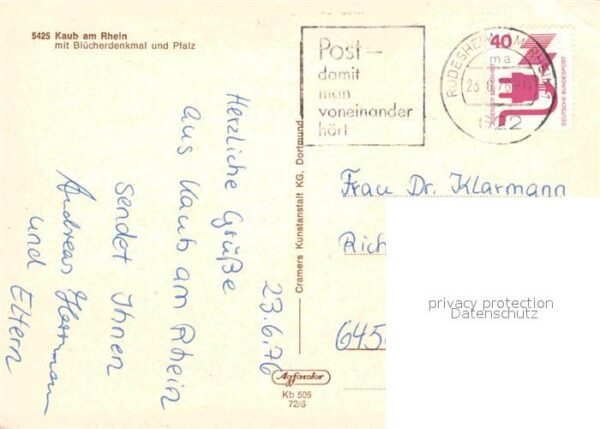 5425 Kaub am Rhein
mit Blücherdenkmal und Pfalz
Post –
damit
man
voneinander
hört
RÜDESHEIM AM RHEIN 1
ma
622
40
DEUTSCHE BUNDESPOST
23.6.76
Herzliche Grüße
aus Kaub am Rhein
sendet Ihnen
Andreas Herrmann
und Eltern
Cramers Kunstanstalt KG, Dortmund
Frau Dr. Klarmann
Rich
645
privacy protection
Datenschutz
Agfacolor
Kb 505
72/6